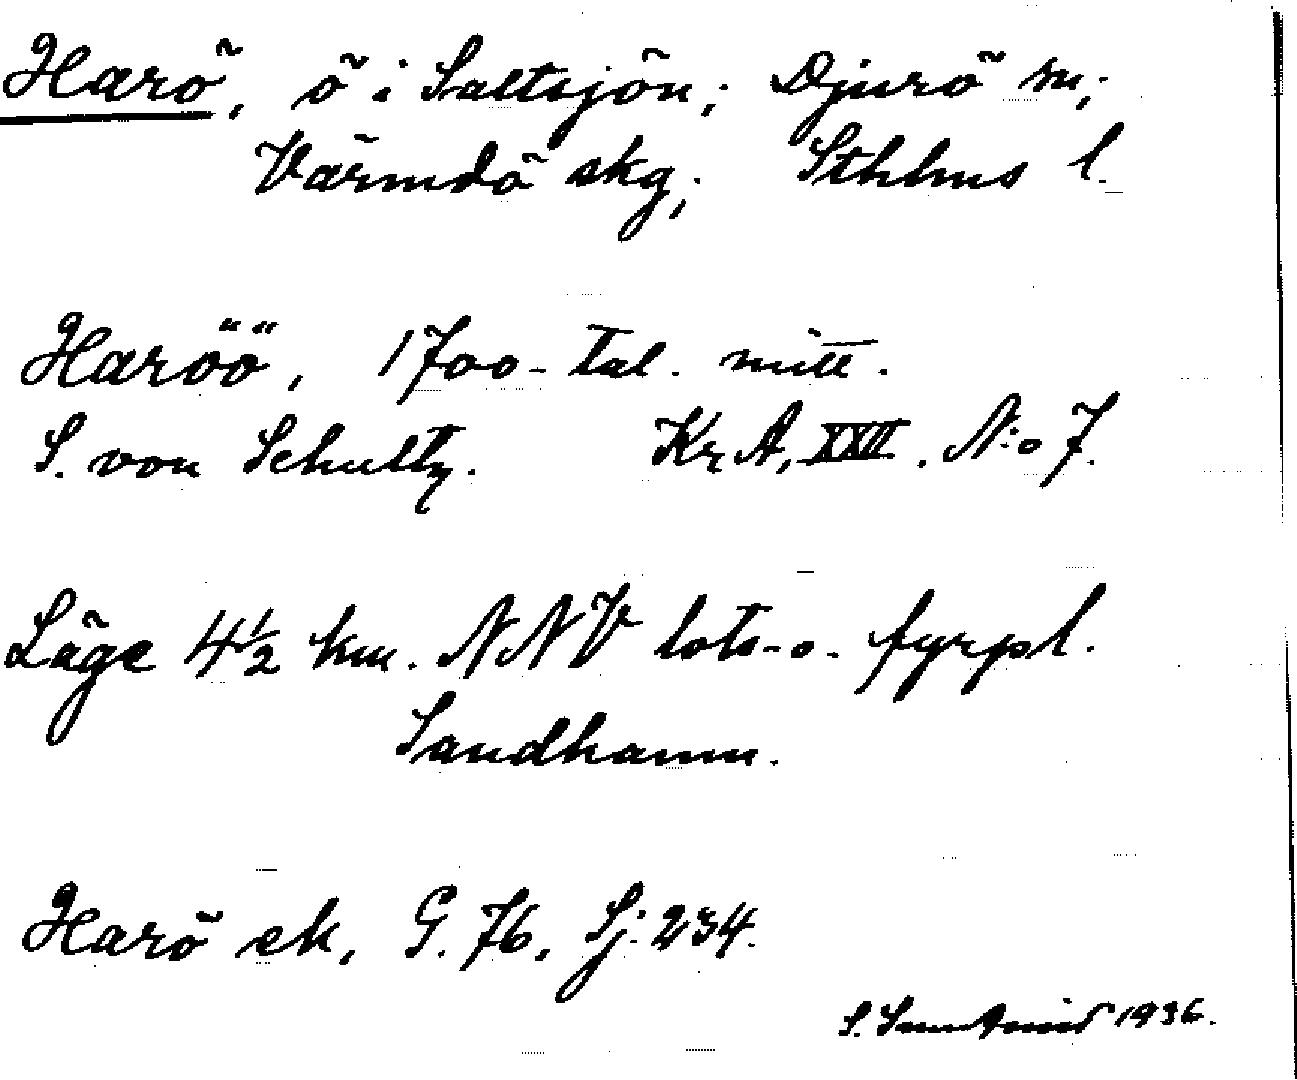 Harö, ö i Saltsjön; Djurö sn;
Värmdö skg; Sthlms l.
Haröö, 1700-tal. mitt.
S. von Schultz. Kr. A, XXII. N:o 7.
Läge 4½ km. NNV lots- o. fyrpl.
Sandhamn.
Harö ek, G. 76, Sj: 234.
S. 1936.